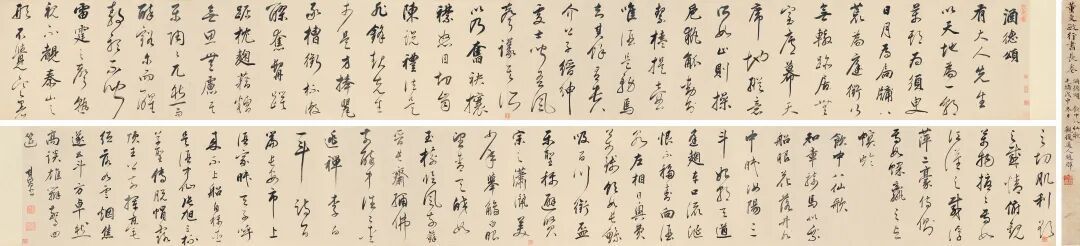 董文敏行書長卷
酒德頌
有大人先生
以天地為一朝
萬期為須臾
日月為扃牖八
荒為庭衢行
無轍跡居無
室廬幕天
席地縱意
所如止則操
卮執觚動則
挈榼提壺
唯酒是務焉
知其餘有貴
介公子縉紳
處士聞吾風
聲議其所
以乃奮袂攘
襟怒目切齒
陳說禮法是
非鋒起先生
於是方捧罌
承槽銜杯漱
醪奮髯踑
踞枕麴藉糟
無思無慮其
樂陶陶兀然而
醉豁爾而醒
靜聽不聞
雷霆之聲熟
視不覩泰山之
形不覺寒暑
之切肌利欲
之感情俯觀
萬物擾擾焉如
江漢之載浮
萍二豪侍側
焉如蜾蠃之與
螟蛉
飲中八仙歌
知章騎馬似乘
船眼花落井水
中眠汝陽三
斗始朝天道
逢麴車口流涎
恨不移封向酒
泉左相日興費
萬錢飲如長鯨
吸百川銜盃
樂聖稱避賢
宗之瀟灑美
少年舉觴白眼
望青天皎如
玉樹臨風前蘇
晉長齋繡佛
前醉中往往愛
逃禪李白
一斗詩百
篇長安市上
酒家眠天子呼
來不上船自稱臣
是酒中仙張旭三杯
草聖傳脫帽露
頂王公前揮毫
落紙如雲煙焦
遂五斗方卓然
高談雄辯驚四
筵 其昌